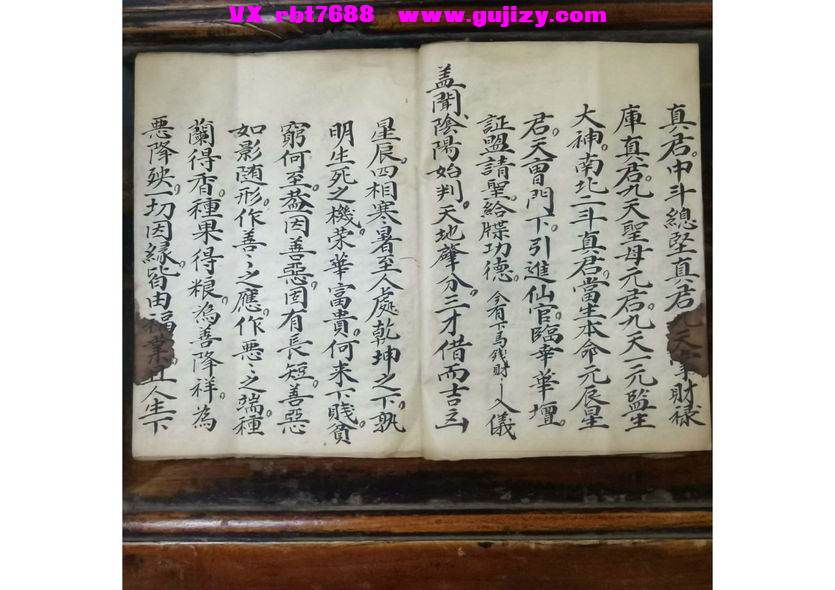 VX rbt7688 www.gujizy.com
真君。中斗總堅真君九天掌財祿
庫真君。九天聖母元君。九天一元監生
大神。南北二斗真君。當生本命元辰星
君。天曹門下。引進仙官。臨幸華壇。
証盟請聖。給牒功德。今有下馬錢財 入儀
盖聞陰陽始判。天地肇分。三才借而吉立
星辰。四相寒暑至人處乾坤之下。孰
明生死之機。榮華富貴。何来下賤貧
窮何至。蓋因善惡。固有長短。善惡
如影随形。作善〻之應。作悪〻之端。種
蘭得香。種果得粮。為善降祥。為
悪降殃。一切因緣。皆由福業。且人生下